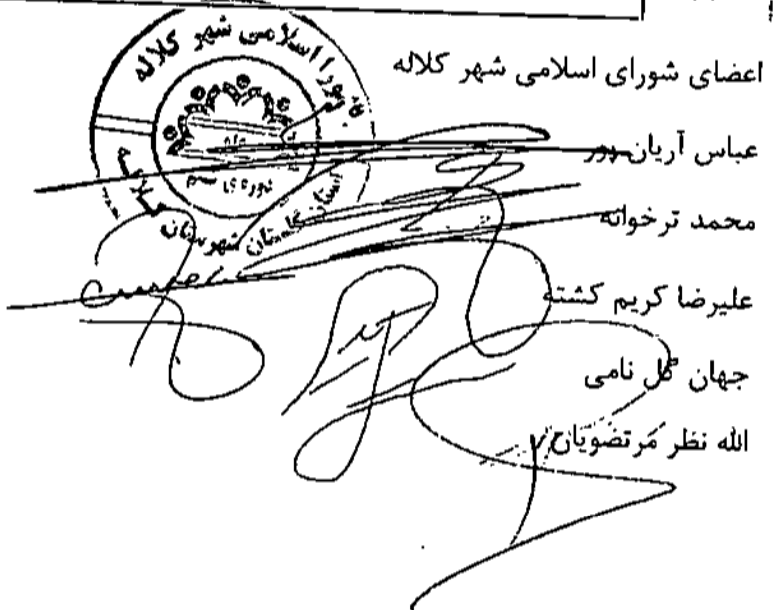 اعضای شورای اسلامی شهر کلاله
عباس آریان‌پور
محمد ترخوانه
علیرضا کریم کشته
جهان گل نامی
الله نظر مرتضویان
شورا اسلامی شهر کلاله
دوره ی سوم
استان گلستان شهرستان کلاله